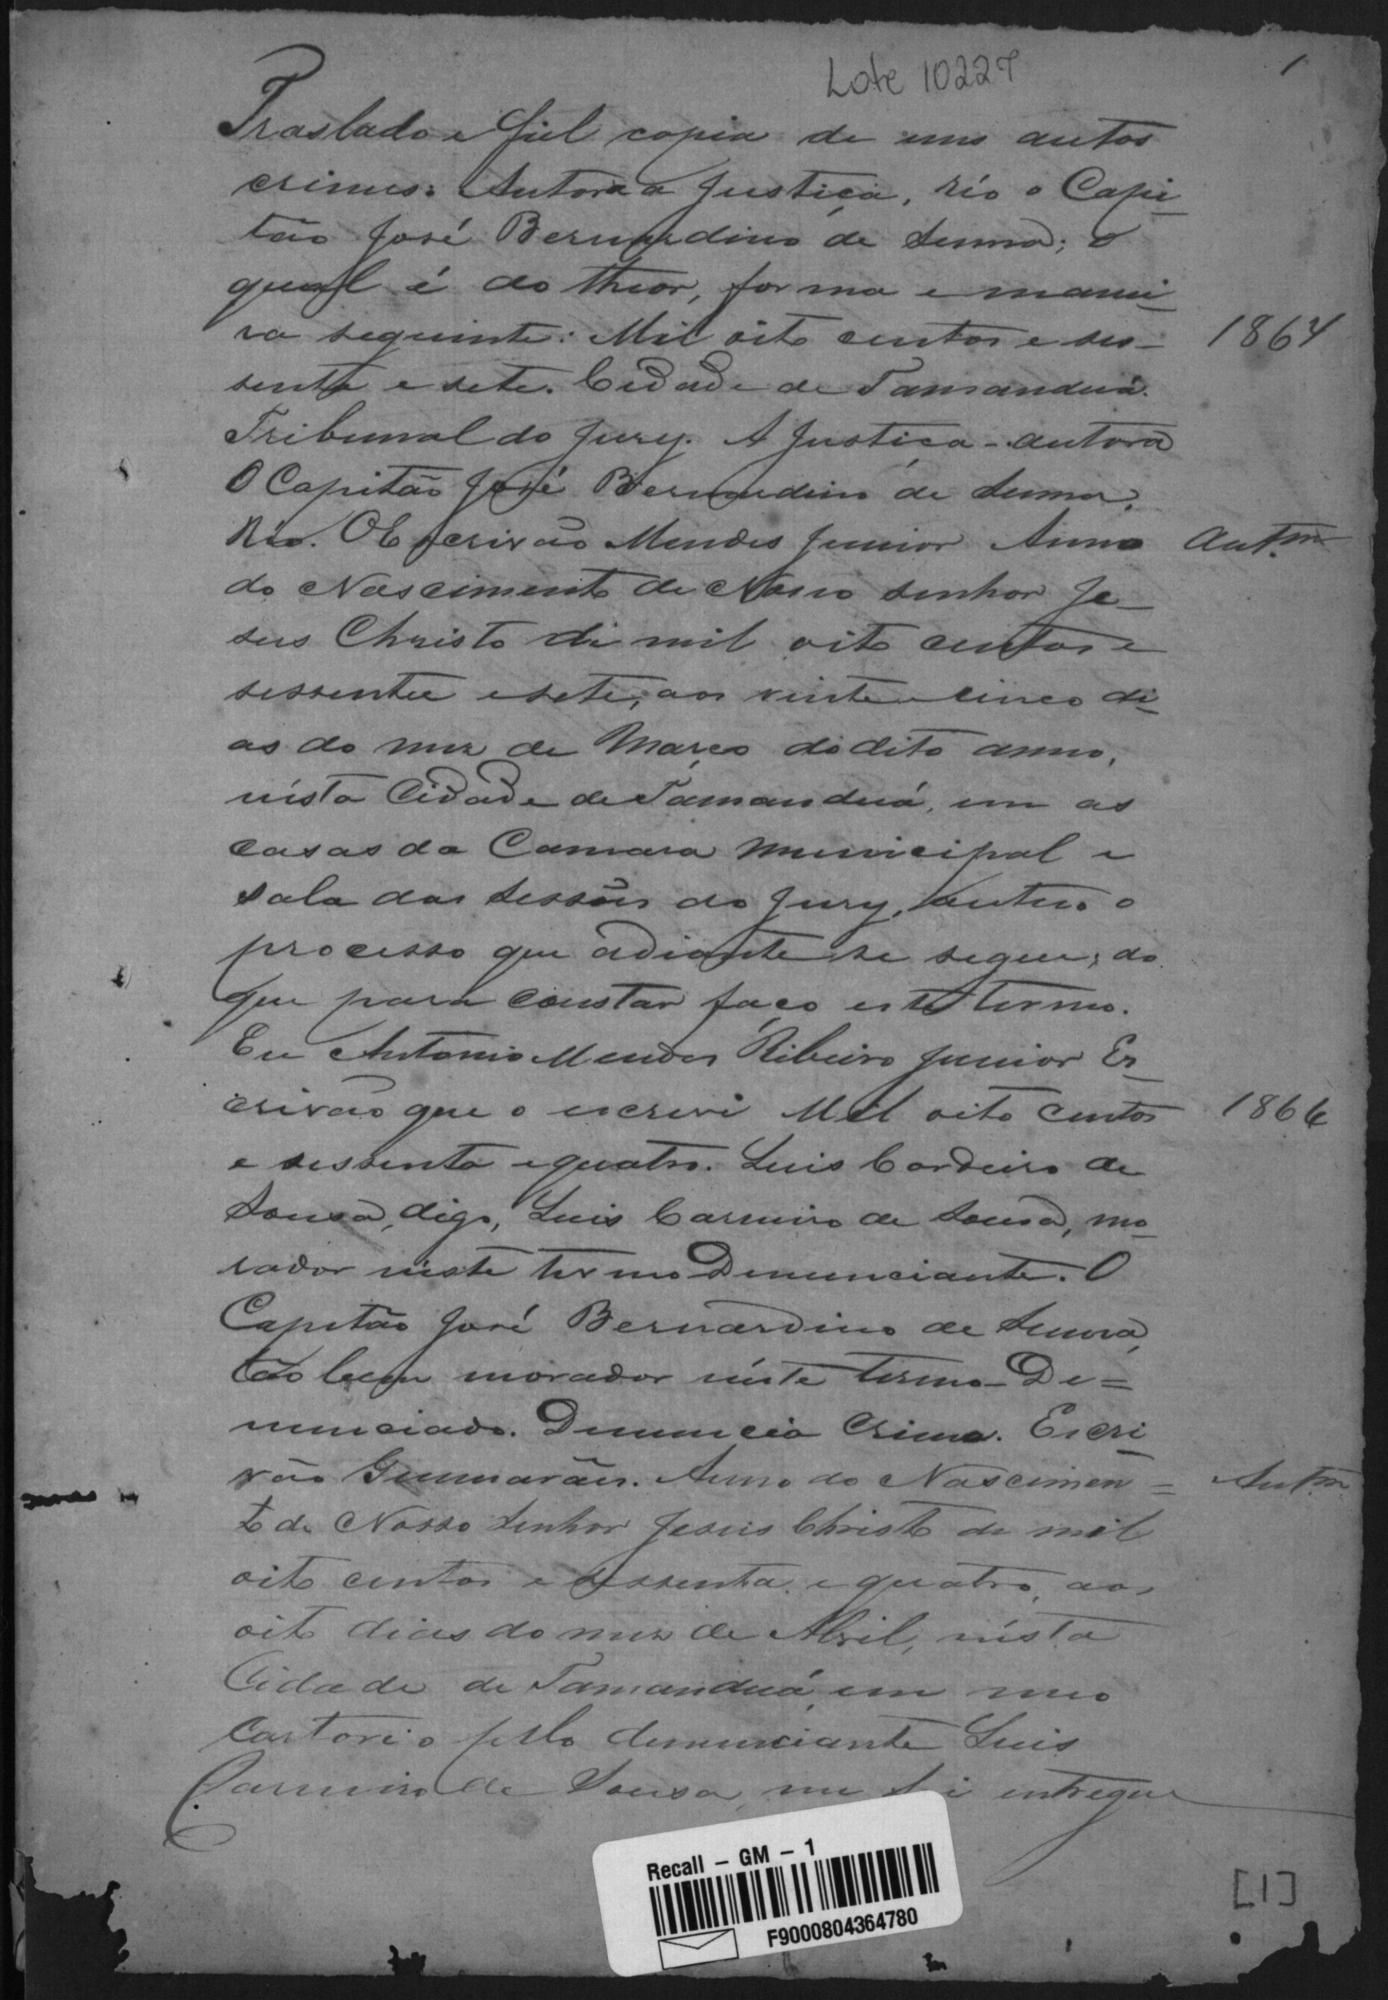 Lote 10227
1
Traslado e fiel copia de uns autos
crimes: Autora a Justiça, réo o Capi-
tão José Bernardino de Senna; o
qual é do theor, forma e manei-
ra seguinte: Mil oito centos e ses-
1867
senta e sete. Cidade de Tamanduá.
Tribunal do Jury. A Justiça - autora
O Capitão José Bernardino de Senna,
Réo. O Escrivão Mendes Junior Anno
Autm
do Nascimento de Nosso Senhor Je-
sus Christo de mil oito centos e
sessenta e sete, aos vinte e cinco di-
as do mez de Março do dito anno,
nésta Cidade de Tamanduá, em as
casas da Camara Municipal e
sala das Sessões do Jury, autuo o
processo que adiante se segue; do
que para constar faço este termo.
Eu Antonio Mendes Ribeiro Junior Es-
crivão que o escrevi Mil oito centos
1864
e sessenta e quatro. Luis Cordeiro de
Sousa, digo, Luis Carneiro de Sousa, mo-
rador néste termo Denunciante. O
Capitão José Bernardino de Senna,
tão bem morador néste termo - De=
nunciado. Denuncia Crime. Escri-
vão Guimarães. Anno do Nascimen=
Autm
to de Nosso Senhor Jesus Christo de mil
oito centos e sessenta e quatro, aos
oito dias do mez de Abril, nésta
Cidade de Tamanduá, em meo
Cartorio pelo denunciante Luis
Carneiro de Sousa, me foi entregue
Recall - GM - 1
F9000804364780
[1]